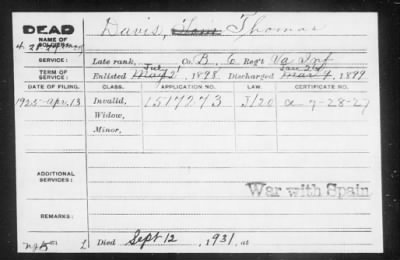 DEAD
NAME OF SOLDIER:
Davis, Thomas
SERVICE:
Late rank, Co. B, 6 Reg't Va Inf
TERM OF SERVICE:
Enlisted July 2, 1898 Discharged Jan 26, 1899
DATE OF FILING. CLASS. APPLICATION NO. LAW. CERTIFICATE NO.
1925-Apr. 13 Invalid, 1517273 J/20 a 7-28-27
Widow,
Minor,
ADDITIONAL SERVICES:
War with Spain
REMARKS:
Died Sept 12, 1931, at